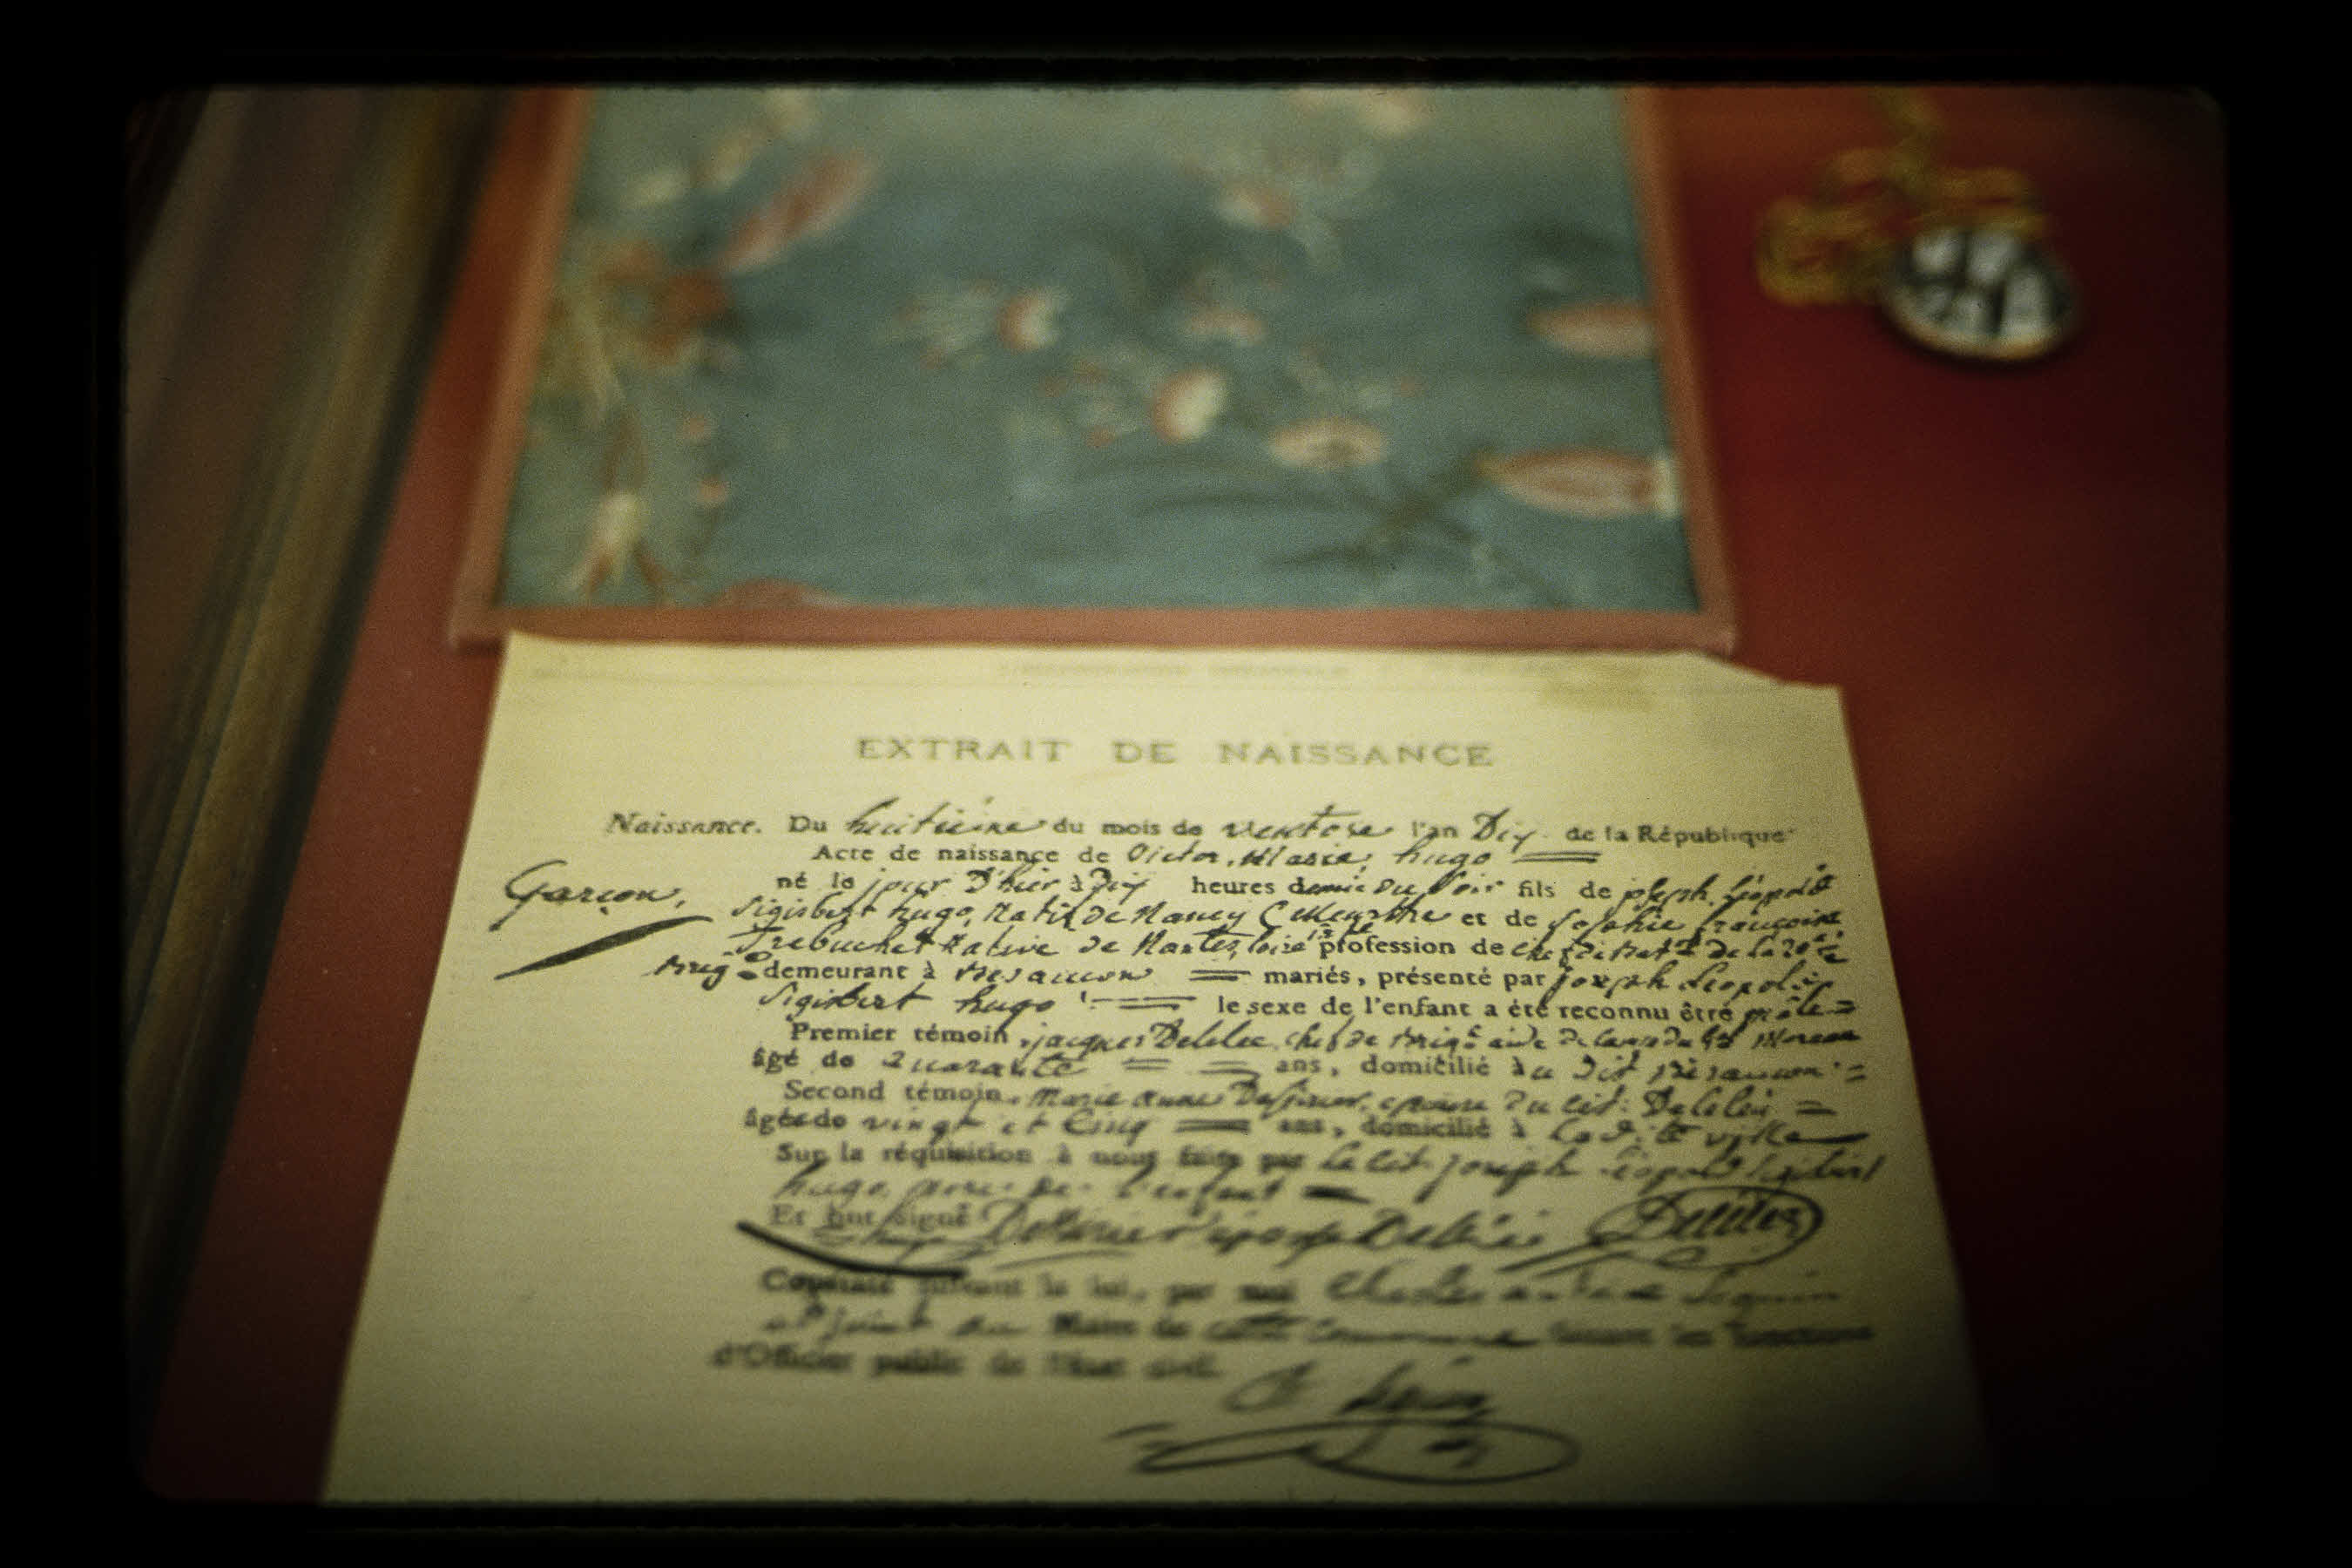 EXTRAIT DE NAISSANCE
Naissance. Du huitième du mois de ventose l'an Dix de la République
Acte de naissance de Victor, Marie, hugo
Garçon,
né le jour d'hier à Dix heures demie du Soir fils de joseph, Léopold
Sigisbert hugo, Natif de Nancy (Meurthe et de Sophie françoise
Trebuchet Native de Nantes, loire profession de chef de de la 20
Brig demeurant à Besançon mariés, présenté par joseph Léopold
Sigisbert hugo le sexe de l'enfant a été reconnu être mâle
Premier témoin, jacques Delelée, chef de Brig aide de camp du Moreau
âgé de Quarante ans, domicilié àu dit Besançon
Second témoin, Marie anne Dessirier, epouse du cit. Delelée
âgée de vingt et Cinq ans, domicilié à la dite ville
Sur la réquisition à nous faite par le cit. joseph Léopold Sigisbert
hugo, pere de l'enfant
Et ont signé Dessirier épouse Delelée Delelée
Constaté suivant la loi, par moi Charles Seguin
adjoint au Maire de cette Commune faisant les fonctions
d'Officier public de l'état civil.